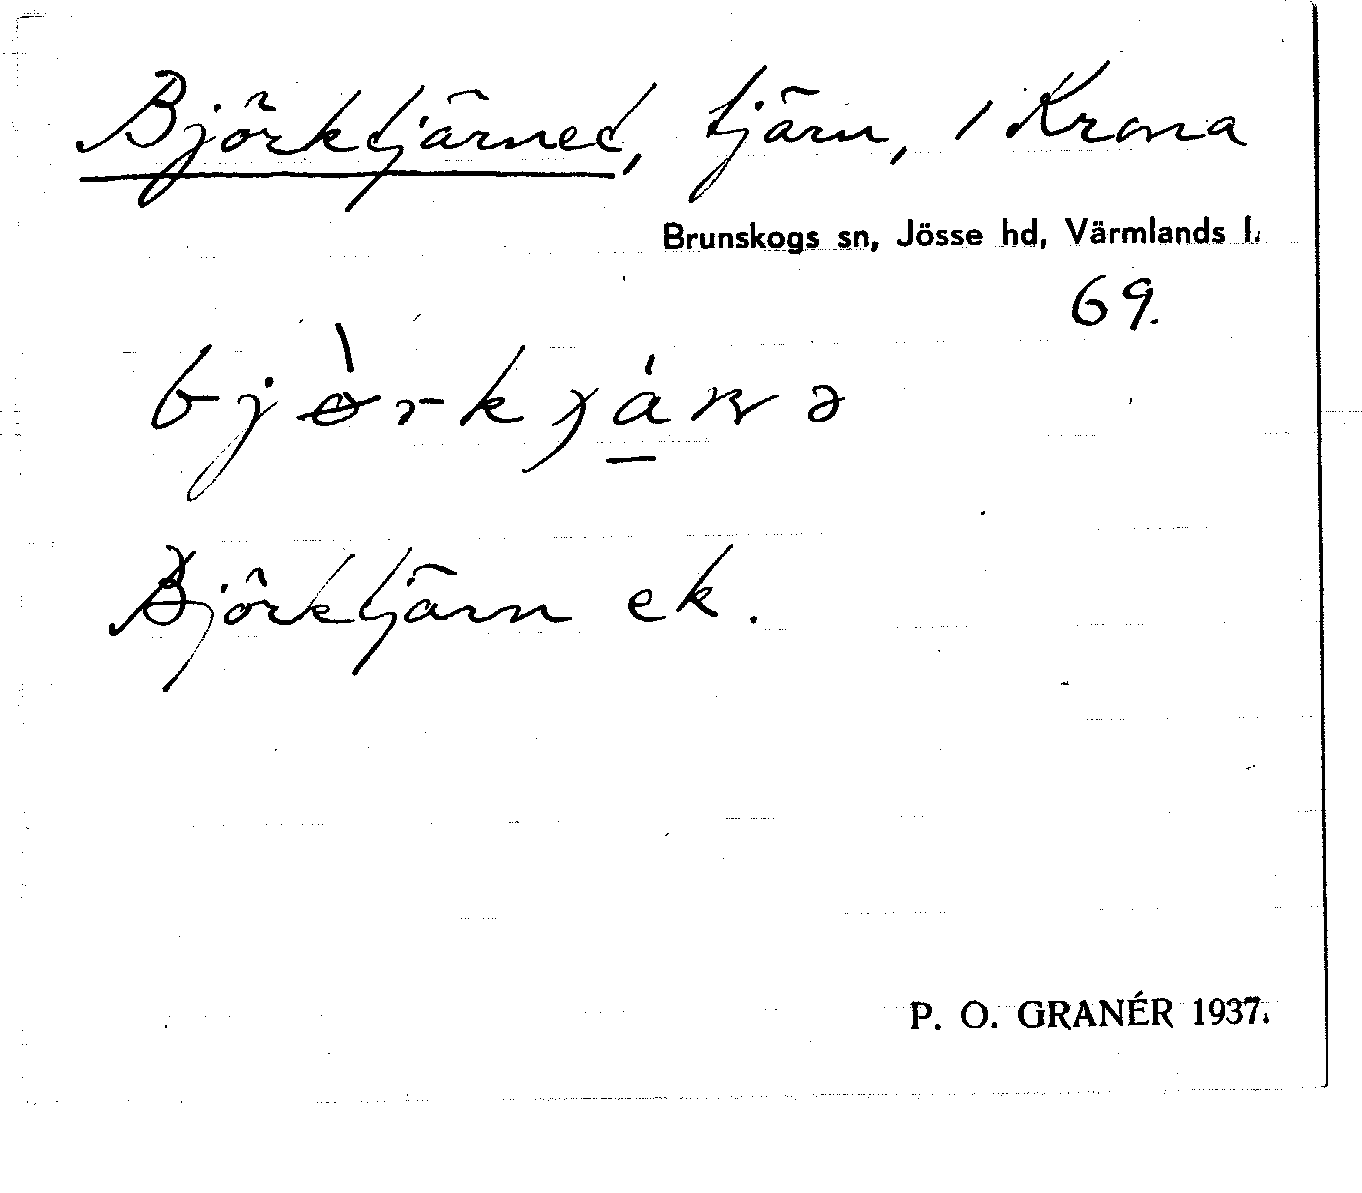 Björktjärnet, tjärn, 1 Krona
Brunskogs sn, Jösse hd, Värmlands l.
69.
Björktjärn ek.
P. O. GRANÉR 1937.